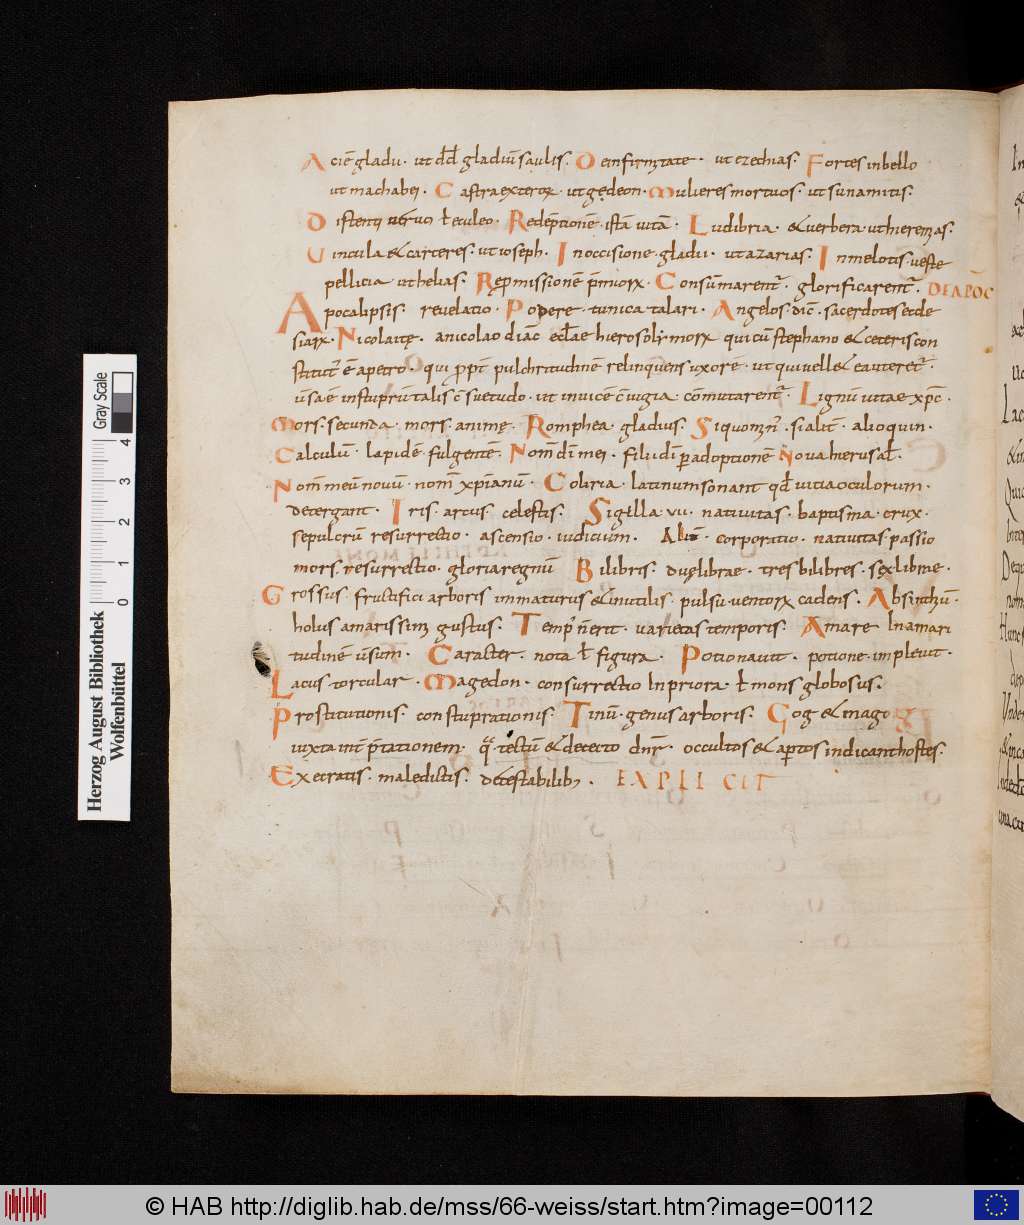 Aciē gladii · ut dd̄ gladiū saulis. De infirmitate · ut ezechias. Fortes in bello
ut machabei. Castra exterorum · ut gedeon. Mulieres mortuos · ut sunamitis.
Distenti nervo ł eculeo. Redēptionē · istā vitā. Ludibria · & verbera ut hieremias.
Vincula & carceres. ut ioseph. In occisione gladii · ut azarias. In melotis. veste
pellicia ut helias. Repmissionē p̄miorum. Consūmarent̄. glorificarent̄. DE APOC̄
Apocalipsis · revelatio · Podere · tunica talari. Angelos. dic̄. sacerdotes et de
siarum. Nicolaitę. a nicolao diac̄ ecl̄ae hierosolymorum qui cū stephano & ceteris con
stitut̄ ē a petro. qui ppt̄ pulchritudinē relinquens uxorē. ut qui vell& ea uteret̄.
Lignū vitae xp̄c.
Mors. secunda · mors. animę. Romphea gladius. Si quominus · si alit̄ · alioquin.
Calculū · lapidē fulgentē. Nom̄ dī mei · filii dī p adoptionē Nova hierusał.
Nom̄ meū novū · nom̄ xp̄ianū. Coliria · latinum sonant qd̄ vitia oculorum.
detergant. Iris. arcus celestis. Sigilla · vii · nativitas. baptisma. crux.
sepulcrū resurrectio. ascensio. iudicium. Aliī · corporatio. nativitas passio
mors. resurrectio. gloria regnū Bilibris. duę librae. tres bilibres. sex librae.
Grossus. fructifici arboris immaturus & inutilis. pulsu ventorum cadens. Absinthiū.
holus amarissimi gustus. Temp̄ n̄ erit. varietas temporis. Amare In amari
tudinē v̄sum. Caracter. nota ł figura. Potionavit. potione implevit.
Lacus torcular. Magedon. consurrectio In priora ł mons globosus.
Prostitutionis. constuprationis. Tinū. genus arboris. Gog & magog
iuxta int̄ p̄tationem. q̄ tectū & detecto dn̄r. occultos & aptos indicant hostes.
Execratis. maledictis. detestabilib;. EXPLICIT
Gray Scale
Herzog August Bibliothek
Wolfenbüttel
0 1 2 3 4
© HAB http://diglib.hab.de/mss/66-weiss/start.htm?image=00112